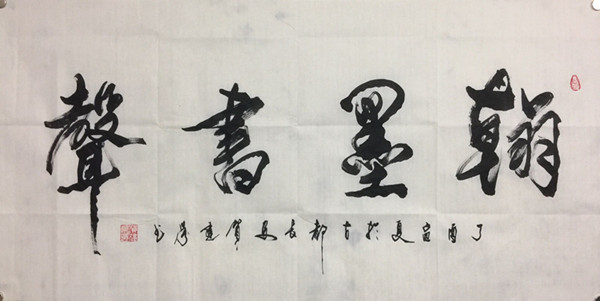 翰墨書聲
丁酉夏於古都長安賀書